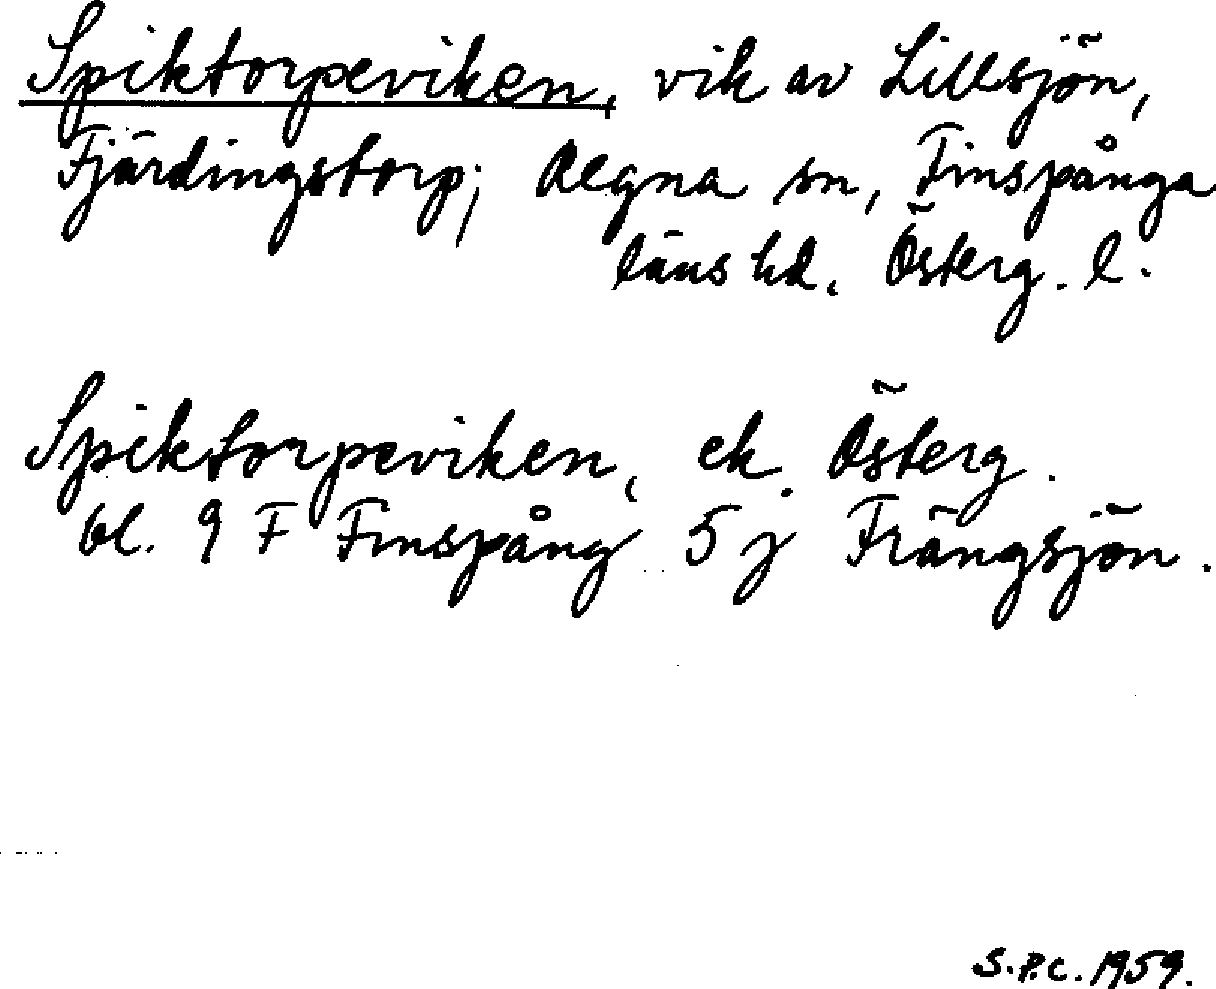 Spiktorpeviken, vik av Lillsjön,
Fjärdingstorp; Regna sn, Finspånga
läns hd. Österg. l.
Spiktorpeviken, ek. Österg.
bl. 9 F Finspång 5 j Frängsjön.
S.P.C. 1959.